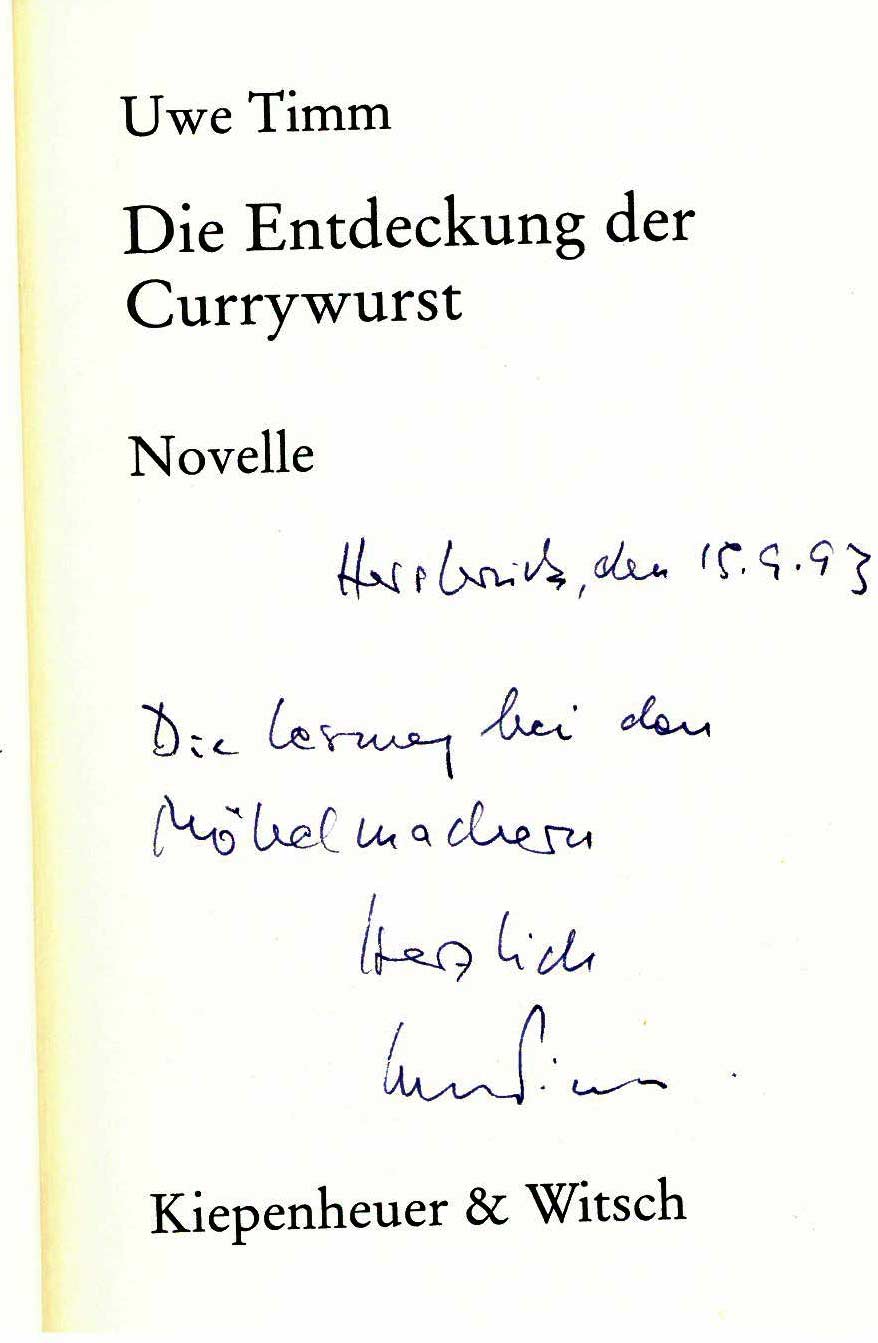 Uwe Timm
Die Entdeckung der
Currywurst
Novelle
Hersbruck, den 15.9.93
Die Lesung bei den
Möbelmachern
Herzlich
Uwe Timm
Kiepenheuer & Witsch